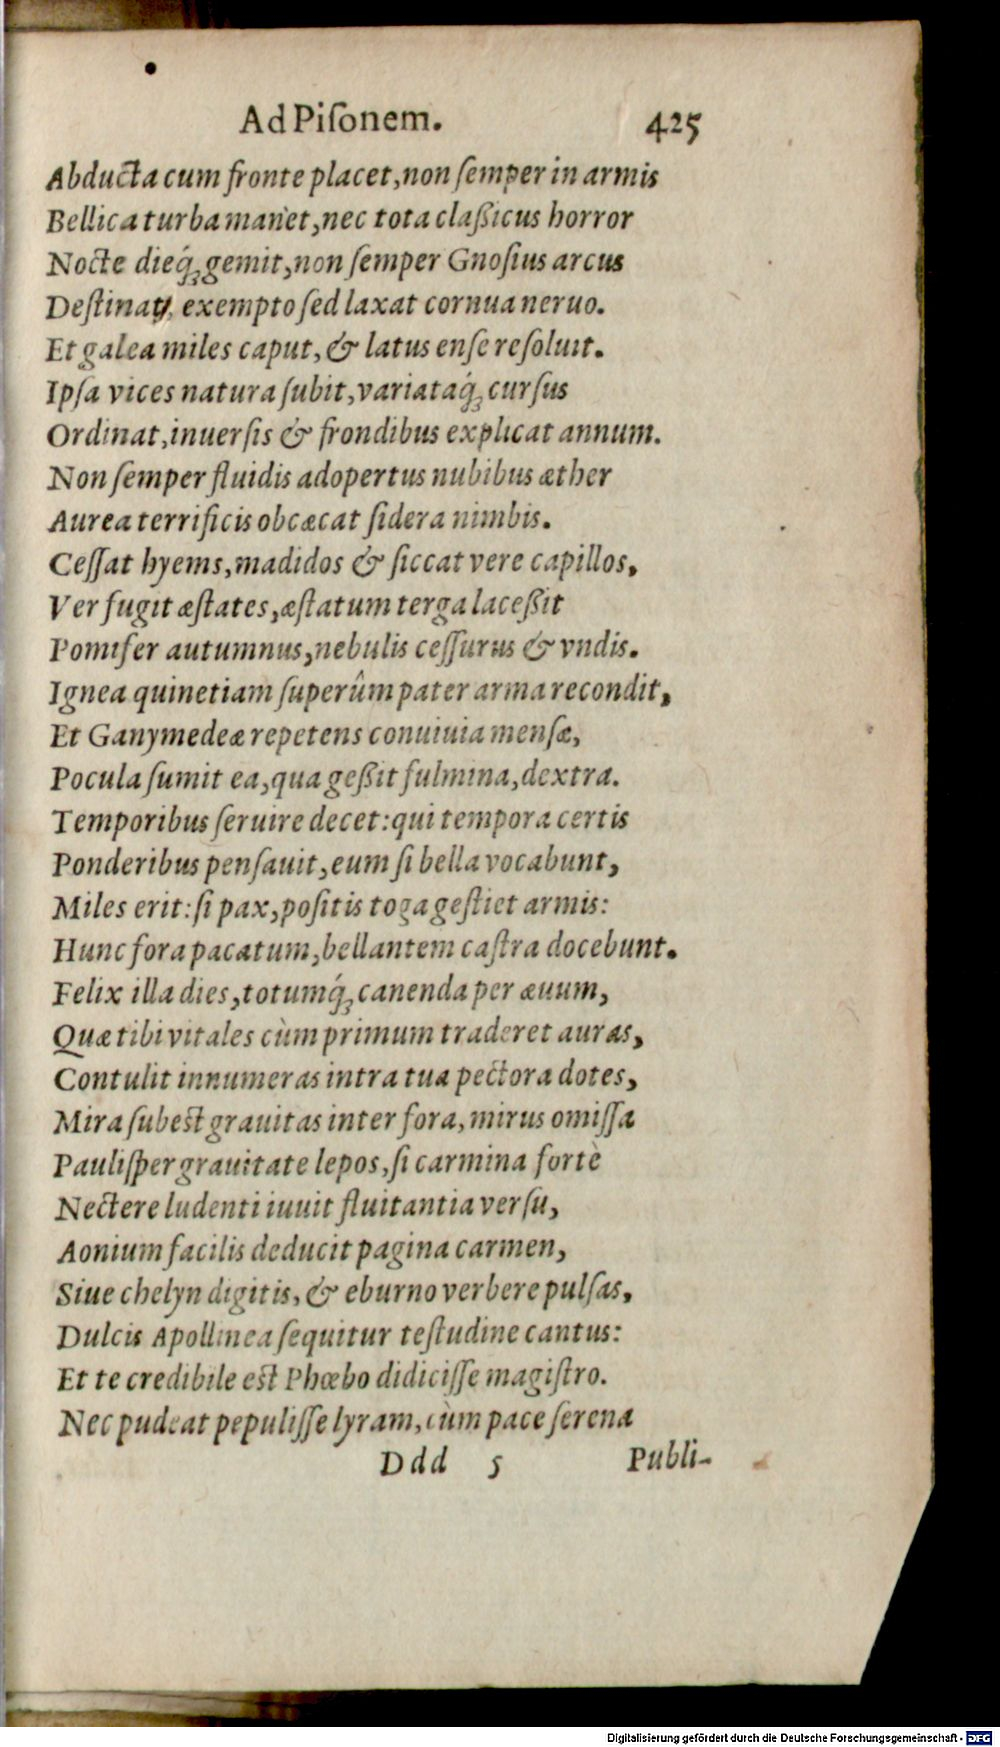 Ad Piſonem. 425
Abducta cum fronte placet, non ſemper in armis
Bellica turba manet, nec tota claßicus horror
Nocte dieq́ꝫ gemit, non ſemper Gnoſius arcus
Deſtinat, exempto ſed laxat cornua neruo.
Et galea miles caput, & latus enſe reſoluit.
Ipſa vices natura ſubit, variataq́ꝫ curſus
Ordinat, inuerſis & frondibus explicat annum.
Non ſemper fluidis adopertus nubibus æther
Aurea terrificis obcæcat ſidera nimbis.
Ceſſat hyems, madidos & ſiccat vere capillos,
Ver fugit æſtates, æſtatum terga laceßit
Pomifer autumnus, nebulis ceſſurus & vndis.
Ignea quinetiam ſuperûm pater arma recondit,
Et Ganymedeæ repetens conuiuia menſæ,
Pocula ſumit ea, qua geßit fulmina, dextra.
Temporibus ſeruire decet: qui tempora certis
Ponderibus penſauit, eum ſi bella vocabunt,
Miles erit: ſi pax, poſitis toga geſtiet armis:
Hunc fora pacatum, bellantem caſtra docebunt.
Felix illa dies, totumq́ꝫ canenda per æuum,
Quæ tibi vitales cùm primum traderet auras,
Contulit innumeras intra tua pectora dotes,
Mira ſubest grauitas inter fora, mirus omiſſa
Pauliſper grauitate lepos, ſi carmina fortè
Nectere ludenti iuuit fluitantia verſu,
Aonium facilis deducit pagina carmen,
Siue chelyn digitis, & eburno verbere pulſas,
Dulcis Apollinea ſequitur teſtudine cantus:
Et te credibile est Phœbo didiciſſe magiſtro.
Nec pudeat pepuliſſe lyram, cùm pace ſerena
Ddd 5 Publi-
Digitalisierung gefördert durch die Deutsche Forschungsgemeinschaft - DFG